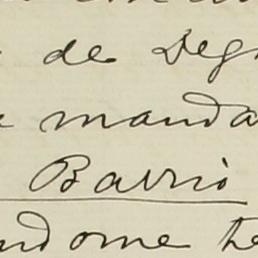 de Seg
manda
Barrio
ndome te